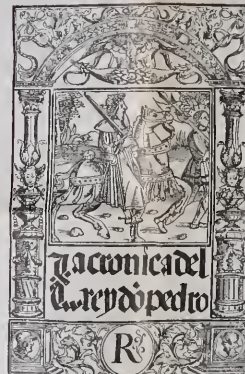 La cronica del
rey dõ pedro
R